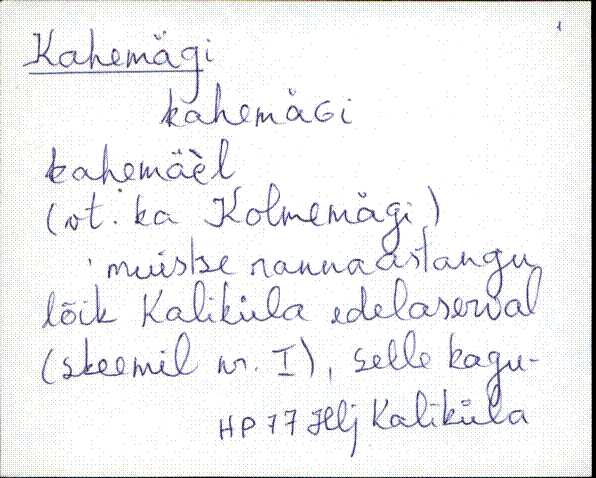 1
Kahemägi
kahemäGi
kahemäèl
(vt. ka Kolmemägi)
muistse rannaastangu
lõik Kaliküla edelaserval
(skeemil nr. I), selle kagu-
HP 77 Hlj Kaliküla